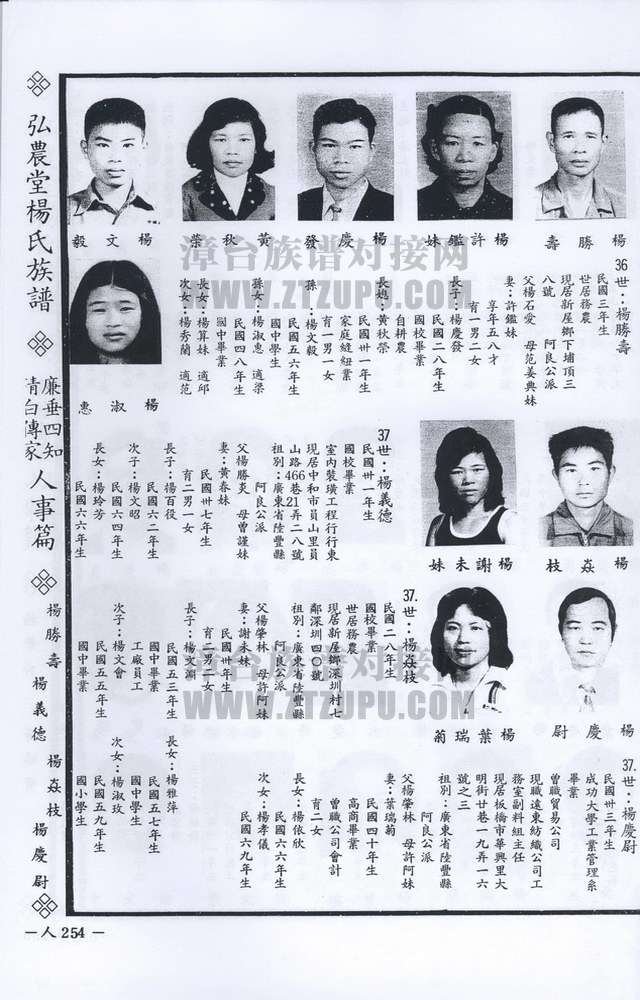 弘農堂楊氏族譜
廉垂四知
清白傳家
人事篇
楊勝壽
楊義德
楊焱枝
楊慶尉
壽勝楊
妹鑑許楊
發慶楊
榮秋黃
毅文楊
惠淑楊
36世：楊勝壽
民國三年生
世居務農
現居新屋鄉下埔頂三
八號 阿良公派
父楊石愛 母范美典妹
妻：許鑑妹
享年五八才
育一男二女
長子：楊慶發
民國二八年生
國校畢業
自耕農
長媳：黃秋榮
民國卅一年生
家庭縫紉業
育一男一女
孫：楊文毅
民國五六年生
國中學生
孫女：楊淑惠 適梁
民國四八年生
國中畢業
長女：楊算妹 適邱
次女：楊秀蘭 適范
枝焱楊
妹未謝楊
37世：楊義德
民國卅一年生
國校畢業
室內裝璜工程行行東
現居中和市員山里員
山路466巷21弄二八號
祖別：廣東省陸豐縣
阿良公派
父楊勝炎 母曾謹妹
妻：黃春妹
民國卅七年生
育二男一女
長子：楊百役
民國六二年生
次子：楊文昭
民國六四年生
長女：楊玲芳
民國六六年生
尉慶楊
翁瑞葉楊
37.世：楊焱枝
民國二八年生
國校畢業
世居務農
現居新屋鄉深圳村七
鄰深圳四〇號
祖別：廣東省陸豐縣
阿良公派
父楊肇林 母許阿妹
妻：謝未妹
民國卅年生
育二男二女
長子：楊文灝
民國五三年生
國中畢業
工廠員工
次子：楊文會
民國五五年生
國中畢業
長女：楊雅萍
民國五七年生
國中學生
次女：楊淑玫
民國五九年生
國小學生
37.世：楊慶尉
民國卅三年生
成功大學工業管理系
畢業
曾職貿易公司
現職遠東紡織公司工
務室副料組主任
現居板橋市華興里大
明街廿巷一九弄一六
號之三
祖別：廣東省陸豐縣
阿良公派
父楊肇林 母許阿妹
妻：葉瑞菊
民國四十年生
高商畢業
曾職公司會計
育二女
長女：楊依欣
民國六六年生
次女：楊孝儀
民國六九年生
—人254—
漳台族谱对接网
WWW.ZTZUPU.COM
漳台族谱对接网
WWW.ZTZUPU.COM